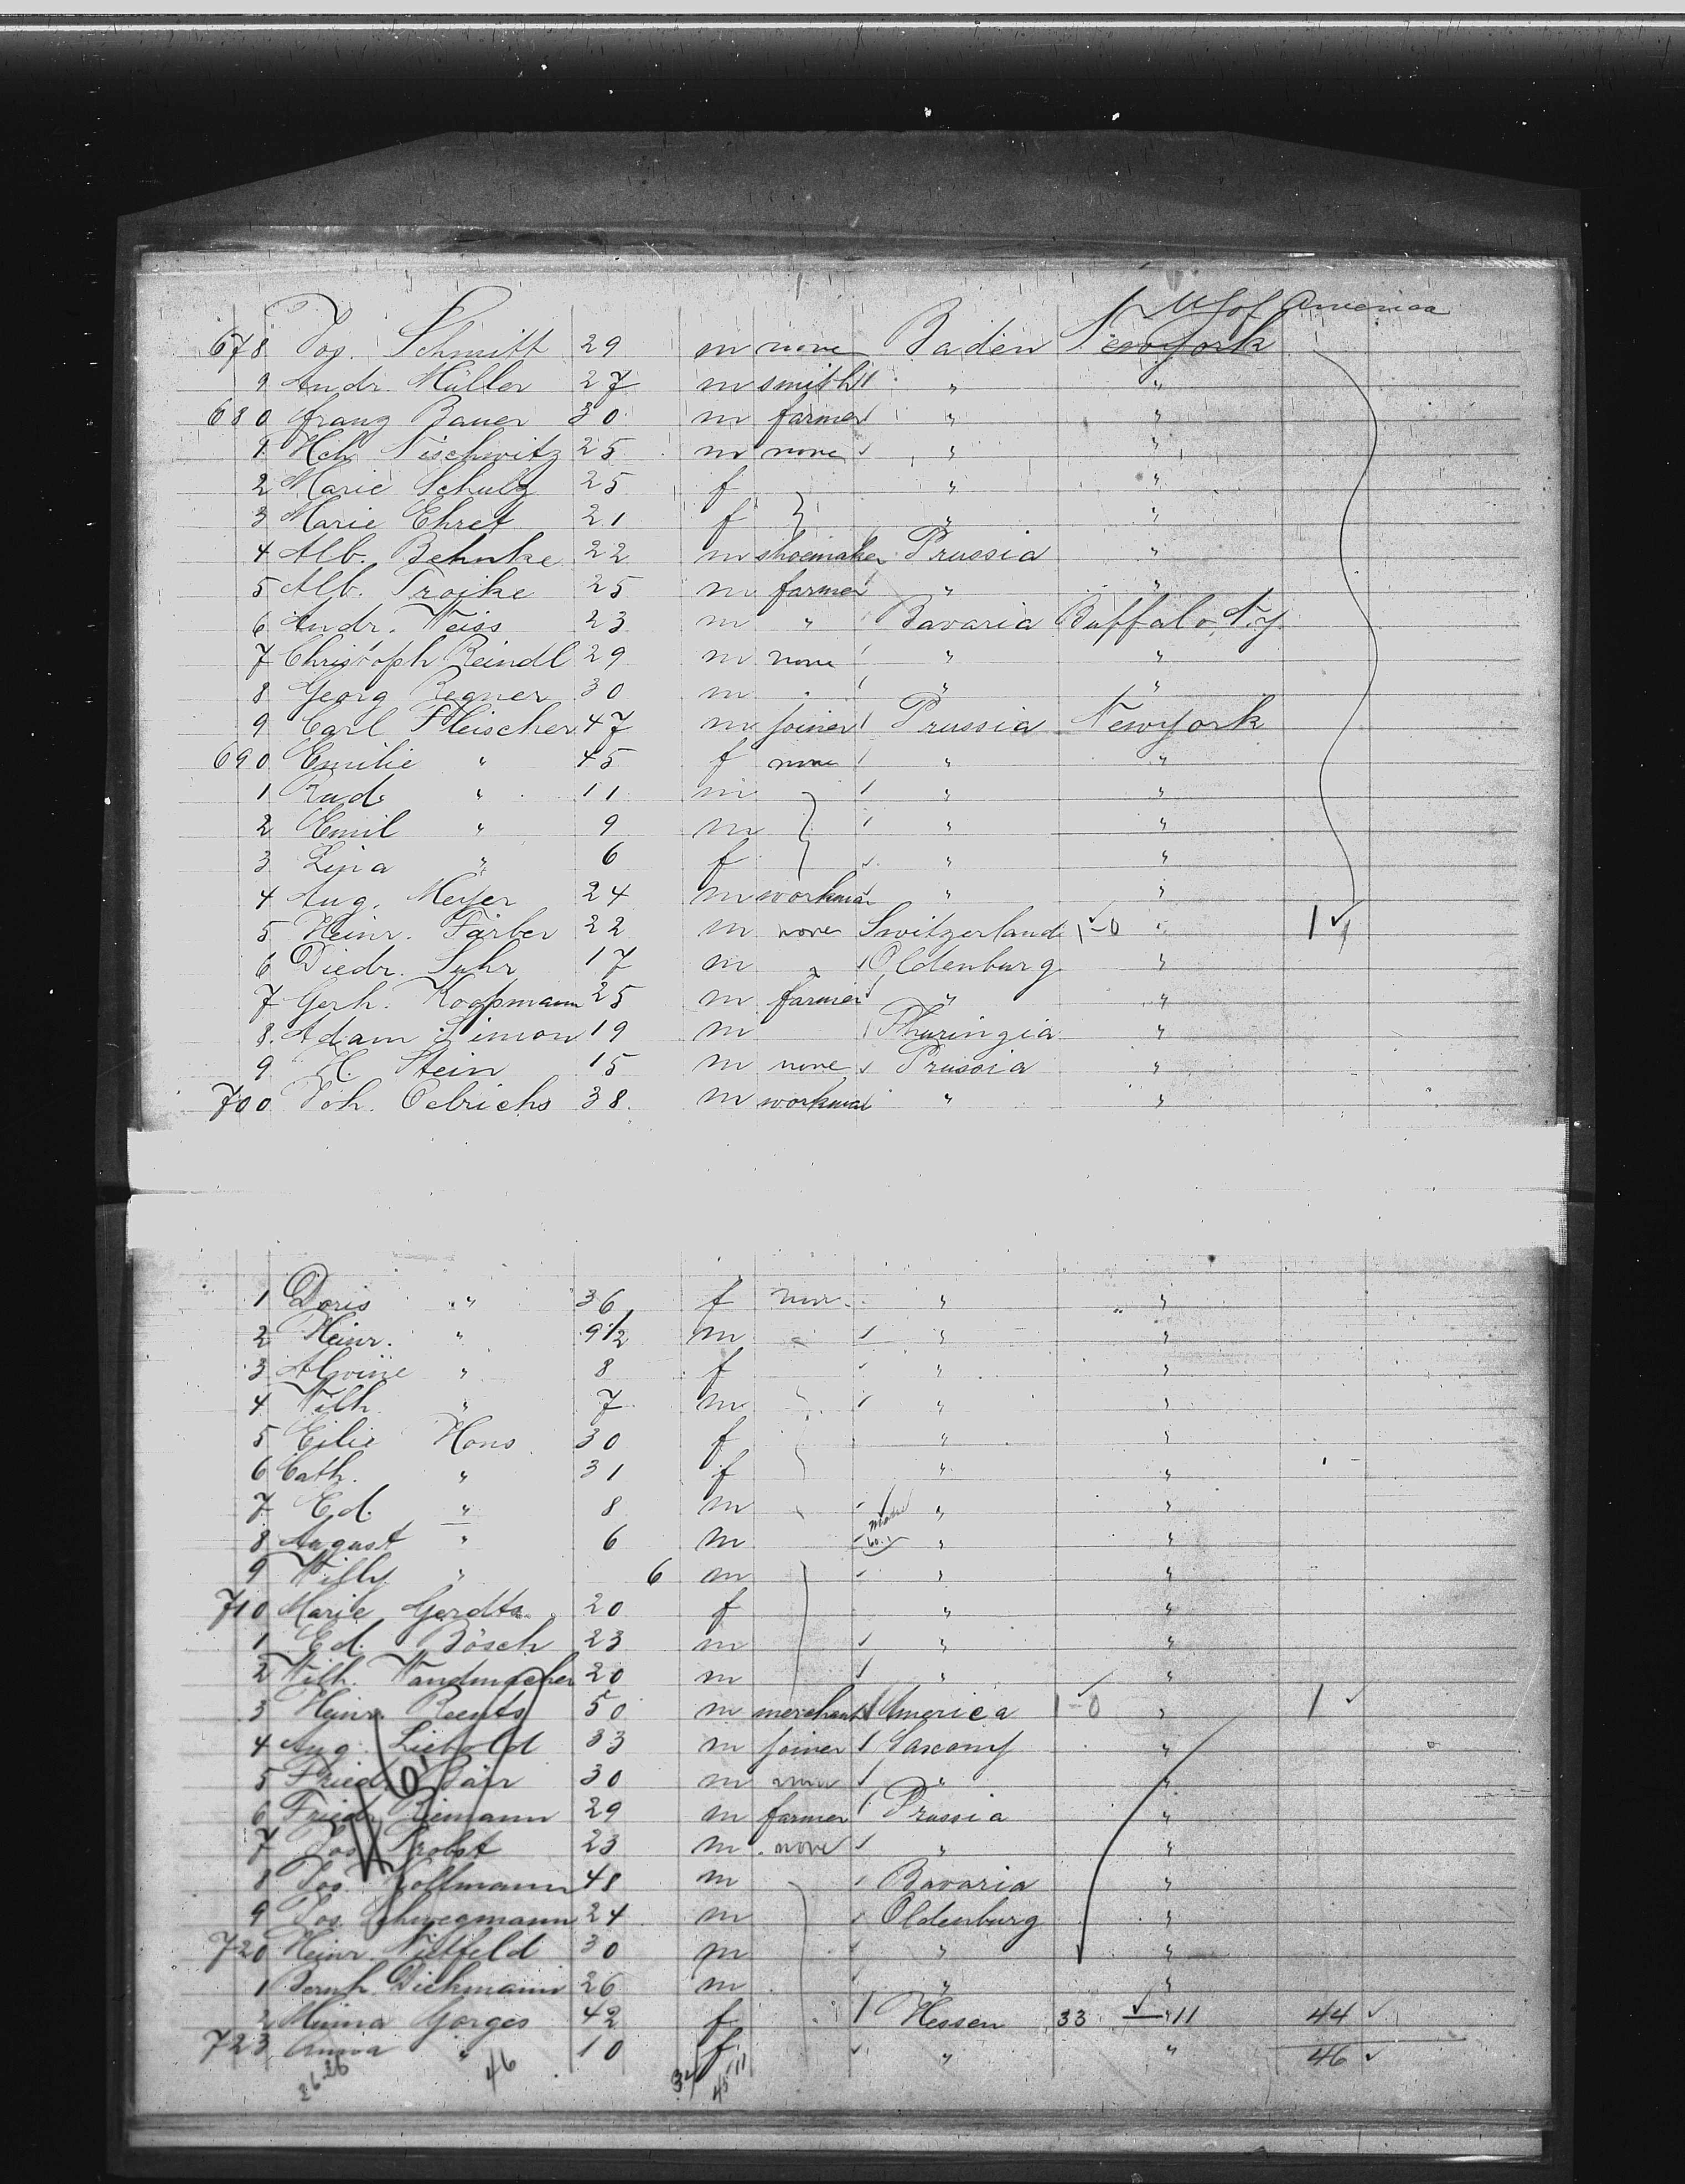 U S of America
678 Jos. Schmitt 29 m none Baden New York
9 Andr. Müller 27 m smith " "
680 Franz Bauer 30 m farmer " "
1 Hch. Nischwitz 25 m none " "
2 Marie Schulz 25 f " "
3 Marie Ehret 21 f " "
4 Alb. Behnke 22 m shoemaker Prussia "
5 Alb. Troike 25 m farmer " "
6 Andr. Weiss 23 m " Bavaria Buffalo, N.y.
7 Christoph Reindl 29 m none " "
8 Georg Regner 30 m " "
9 Carl Fleischer 47 m joiner Prussia New york
690 Emilie " 45 f none " "
1 Rud. " 11 m " "
2 Emil " 9 m " "
3 Lina " 6 f " "
4 Aug. Meyer 24 m workman " "
5 Heinr. Färber 22 m none Switzerland 1-0 " 1
6 Diedr. Suhr 17 m " Oldenburg "
7 Gerh. Koopmann 25 m farmer " "
8 Adam Simon 19 m Thuringia "
9 H. Stein 15 m none Prussia "
700 Joh. Oelrichs 38 m workman " "
1 Doris " 36 f none " "
2 Heinr. " 9 1/2 m " " "
3 Alwine " 8 f " "
4 Wilh. " 7 m " "
5 Eilie Hons 30 f " "
6 Cath. " 31 f " "
7 Ed. " 8 m " "
8 August " 6 m " "
9 Willy " 6 m " "
710 Marie Gerdts 20 f " "
1 Ed. Bösch 23 m " "
2 Wilh. Wandmacher 20 m " "
3 Heinr. Reents 50 m merchant America 1-0 " 1
4 Aug. Liebold 33 m joiner Saxony "
5 Friedr. Bär 30 m none " "
6 Friedr. Riemann 29 m farmer Prussia "
7 Jos. Probst 23 m none " "
8 Jos. Kollmann 48 m Bavaria "
9 Jos. Schwegmann 24 m Oldenburg "
720 Heinr. Nietfeld 30 m " "
1 Bernh. Diekmann 26 m " "
2 Minna Gorges 42 f Hessen 33 — 11 44
723 Anna " 10 f " " 46
26 26 46 34 45 11